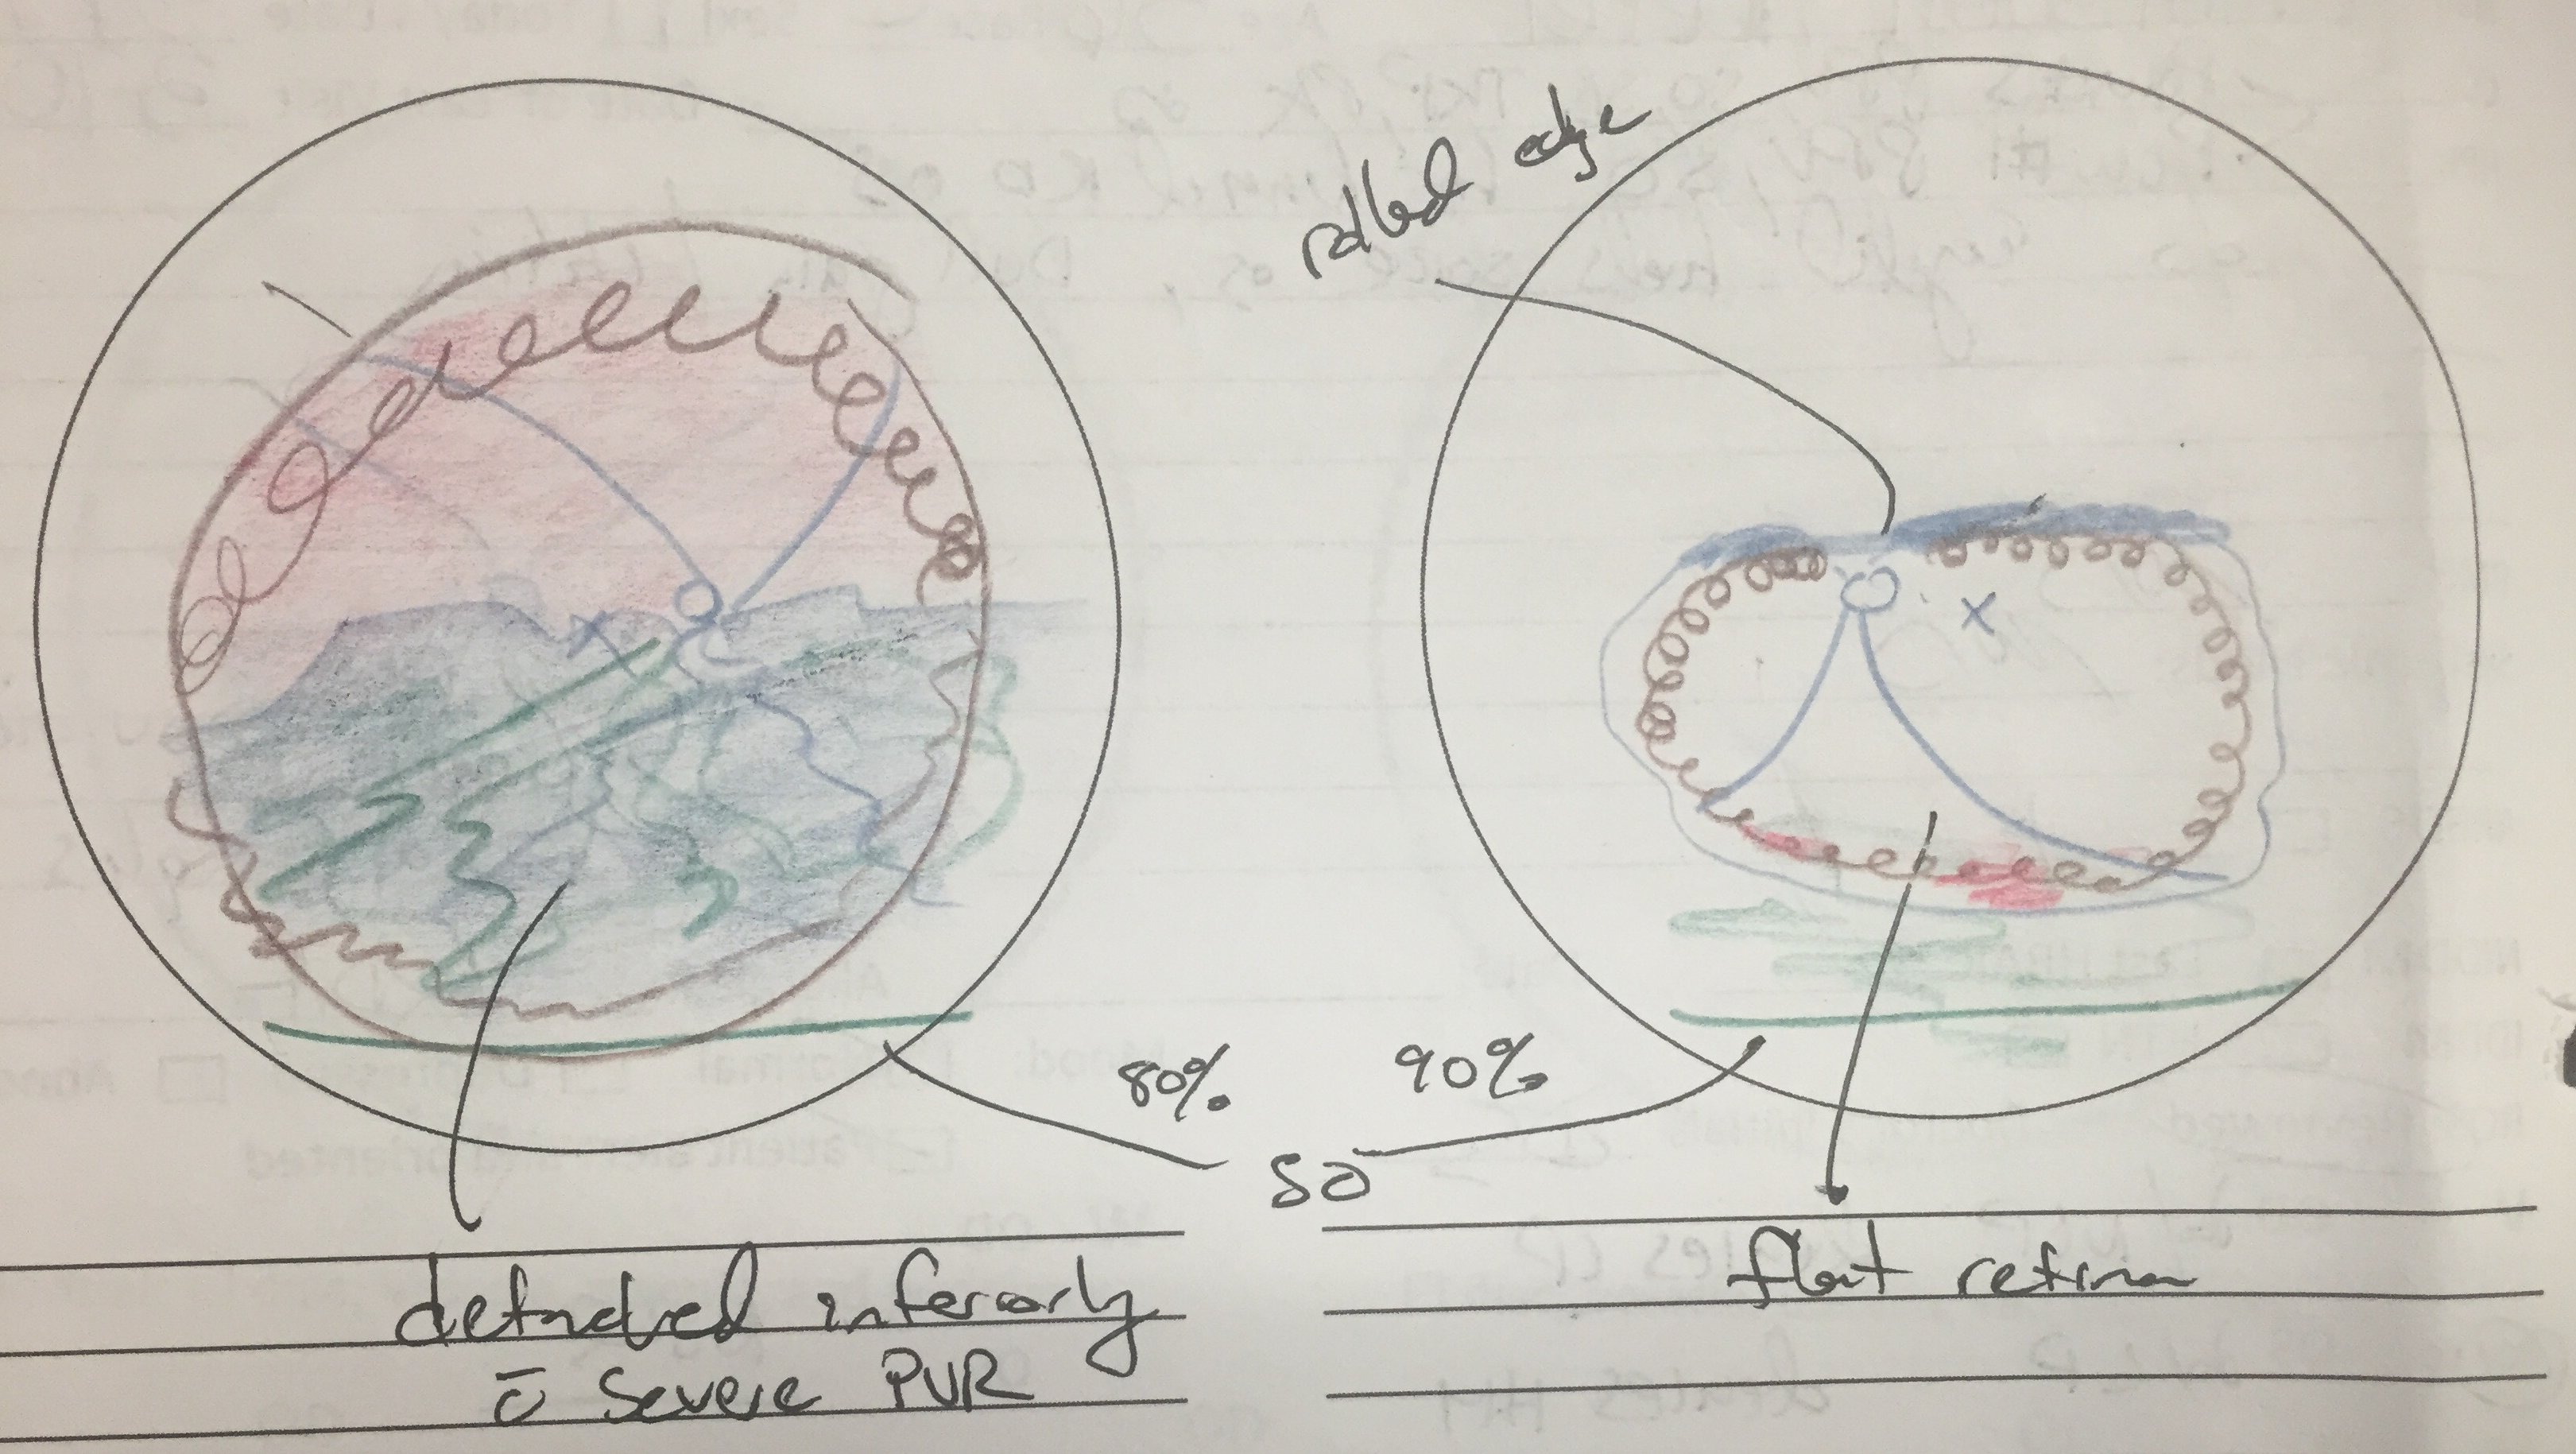 rolled edge
80%
90%
SO
detached inferiorly
c̄ severe PVR
flat retina